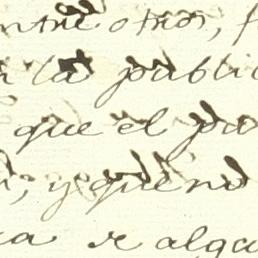 entre otros, f
n la public
que el pa
, y que no
ca se algu